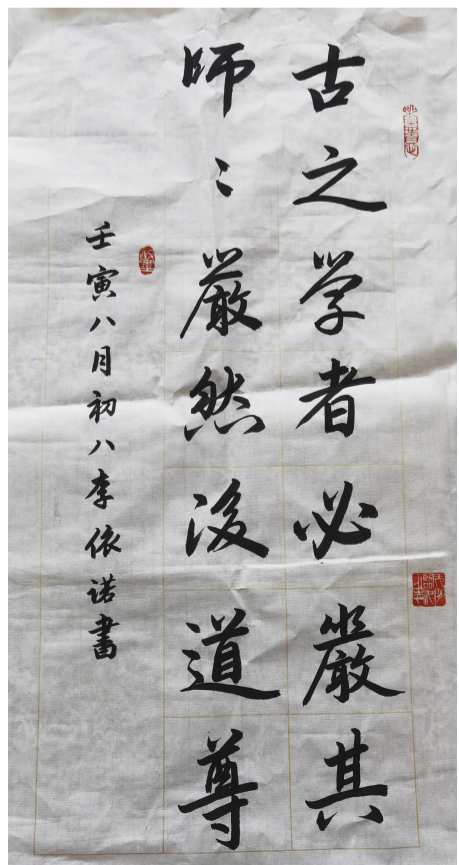 古之学者必嚴其
師〻嚴然後道尊
壬寅八月初八李依诺書